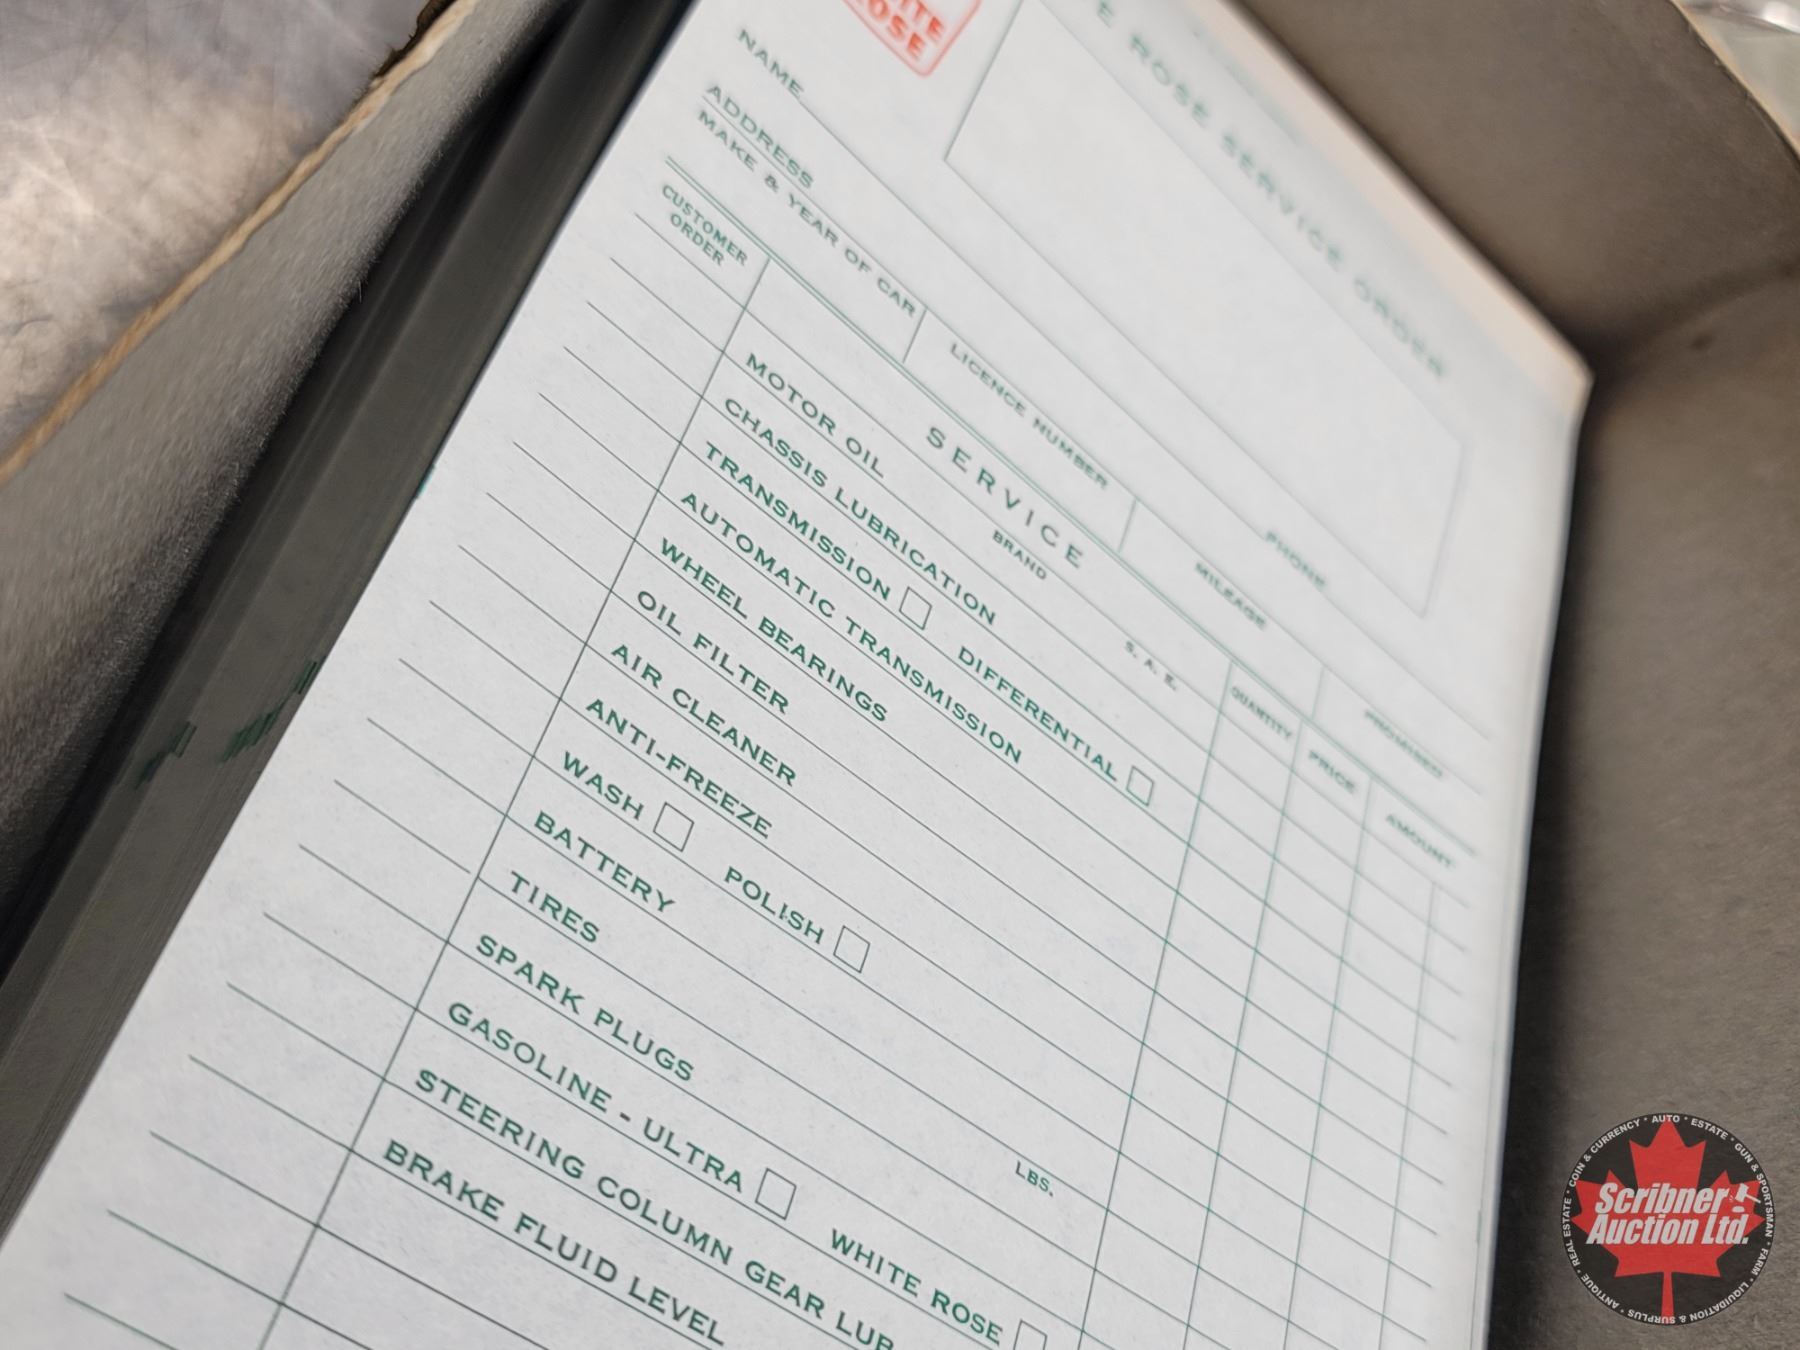 ITE
ROSE
E ROSE SERVICE ORDER
NAME
ADDRESS
PHONE
MAKE & YEAR OF CAR
LICENCE NUMBER
MILEAGE
PROMISED
CUSTOMER
ORDER
SERVICE
QUANTITY
PRICE
AMOUNT
MOTOR OIL BRAND S. A. E.
CHASSIS LUBRICATION
TRANSMISSION DIFFERENTIAL
AUTOMATIC TRANSMISSION
WHEEL BEARINGS
OIL FILTER
AIR CLEANER
ANTI-FREEZE
WASH POLISH
BATTERY
TIRES LBS.
SPARK PLUGS
GASOLINE - ULTRA WHITE ROSE
STEERING COLUMN GEAR LUB
BRAKE FLUID LEVEL
Scribner
Auction Ltd.
ANTIQUE * REAL ESTATE * COIN & CURRENCY * AUTO * ESTATE * GUN & SPORTSMAN * FARM * LIQUIDATION & SURPLUS *